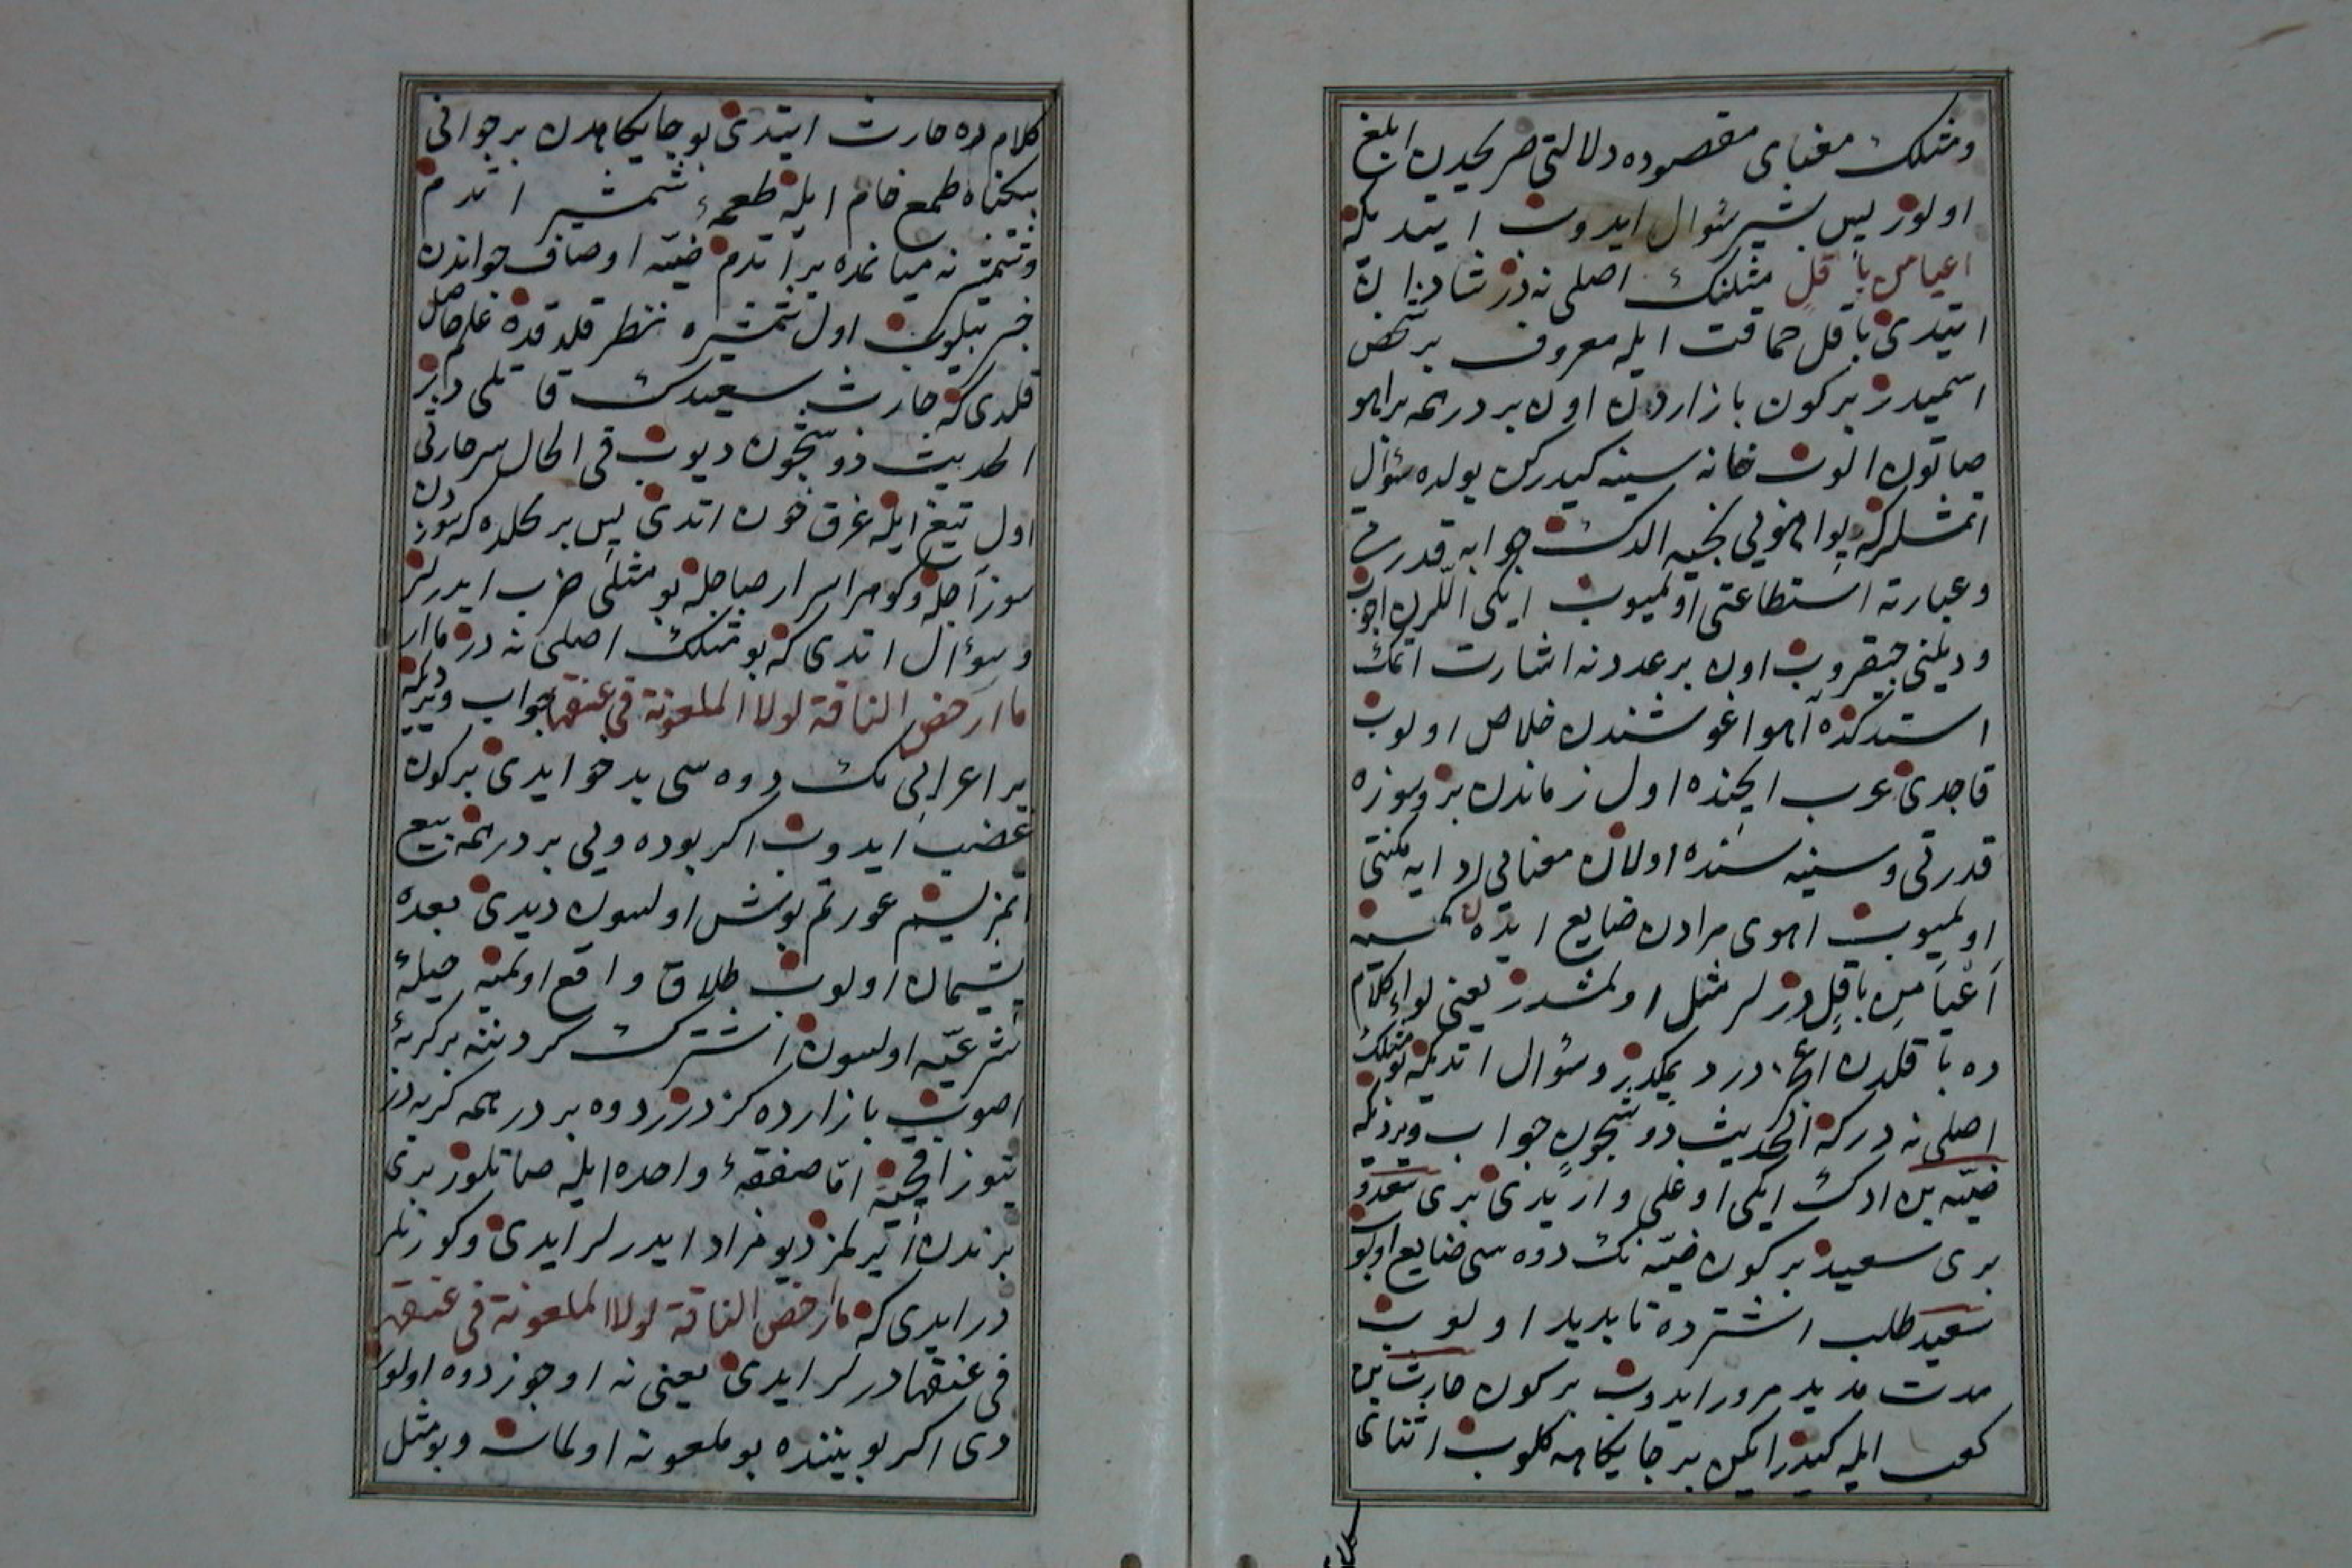 ومثلك معنای مقصوده دلالتی صریحدن ابلغ
اولور پس بشیر سؤال ایدوب ایتدیکه
اعیا من باقل مثلنك اصلی نه در شادان
ایتدی باقل حماقت ایله معروف بر شخص
اسمیدر بر کون بازاردن اون بر درهمه بر اهو
صاتون الوب خانه سینه کیدرکن یولده سؤال
اتمشلر که بو اهویی نچیه الدك جوابه قدرت
وعبارته استطاعتی اولمیوب ایکی اللرن اچوب
ودیلنی چیقروب اون بر عددنه اشارت اتمك
استدکده آهو اغوشندن خلاص اولوب
قاچدی عرب ایچنده اول زماندن بر سوزه
قدرتی وسینه سنده اولان معنایی ادایه مکنتی
اولمیوب اهوی مرادن ضایع ایدن کمسیه
اعیا من باقل درلر مثل اولمشدر یعنی لواء کلام
ده باقلدن اعجز در دیمکدر وسؤال اتدیکه بو مثلك
اصلی نه در که الحدیث ذو شجون جواب ویردیکه
ضبّه بن ادك ایکی اوغلی وار یدی بری سعد و
بری سعید بر کون ضبّه نك دوه سی ضایع اولوب
سعید طلب اشترده ناپدید اولوب
مدت مدید مرور ایدوب بر کون حارث بن
کعب ایله کیدر ایکن بر جایکاهه کلوب اثنای
کلام ده حارث ایتدی بو جایکاهدن بر جوانی
بیکناه طمع خام ایله طعمهٔ شمشیر اتدم
وشمشیرنه میانمده یر اتدم ضبّه اوصاف جواندن
خبر بیلوب اول شمشیره نظر قلدقده علم حاصل
قلدی که حارث سعیدك قاتلی در
الحدیث ذو شجون دیوب فی الحال سر حارثی
اول تیغ ایله غرق خون اتدی پس بر کلده که سوزدن
سوز آچله وکوهر اسرار صاچله بو مثلی ضرب ایدرلر
وسؤال اتدی که بو مثلك اصلی نه در ما ار
ما ارخص الناقة لولا الملعونة فی عنقها جواب ویردیکه
بر اعرابی نك دوه سی بدخو ایدی بر کون
غضب ایدوب اکر بو دوه یی بر درهمه بیع
اتمزسم عورتم بوش اولسون دیدی بعده
پشیمان اولوب طلاق واقع اولمیه حیلهٔ
شرعیّه اولسون اشترك کردننه بر کربهٔ
اصوب بازارده کزدرر دوه بر درهمه کربه در
یتیوز اقچیه امّا صفقهٔ واحده ایله صاتلور بری
برندن آیرلمز دیو مراد ایدرلر ایدی وکورنلر
در ایدی که ما ارخص الناقة لولا الملعونة فی عنقها
فی عنقها درلر ایدی یعنی نه اوجوز دوه اولور
دی اکر بویننده بو ملعونه اولماسه وبو مثل